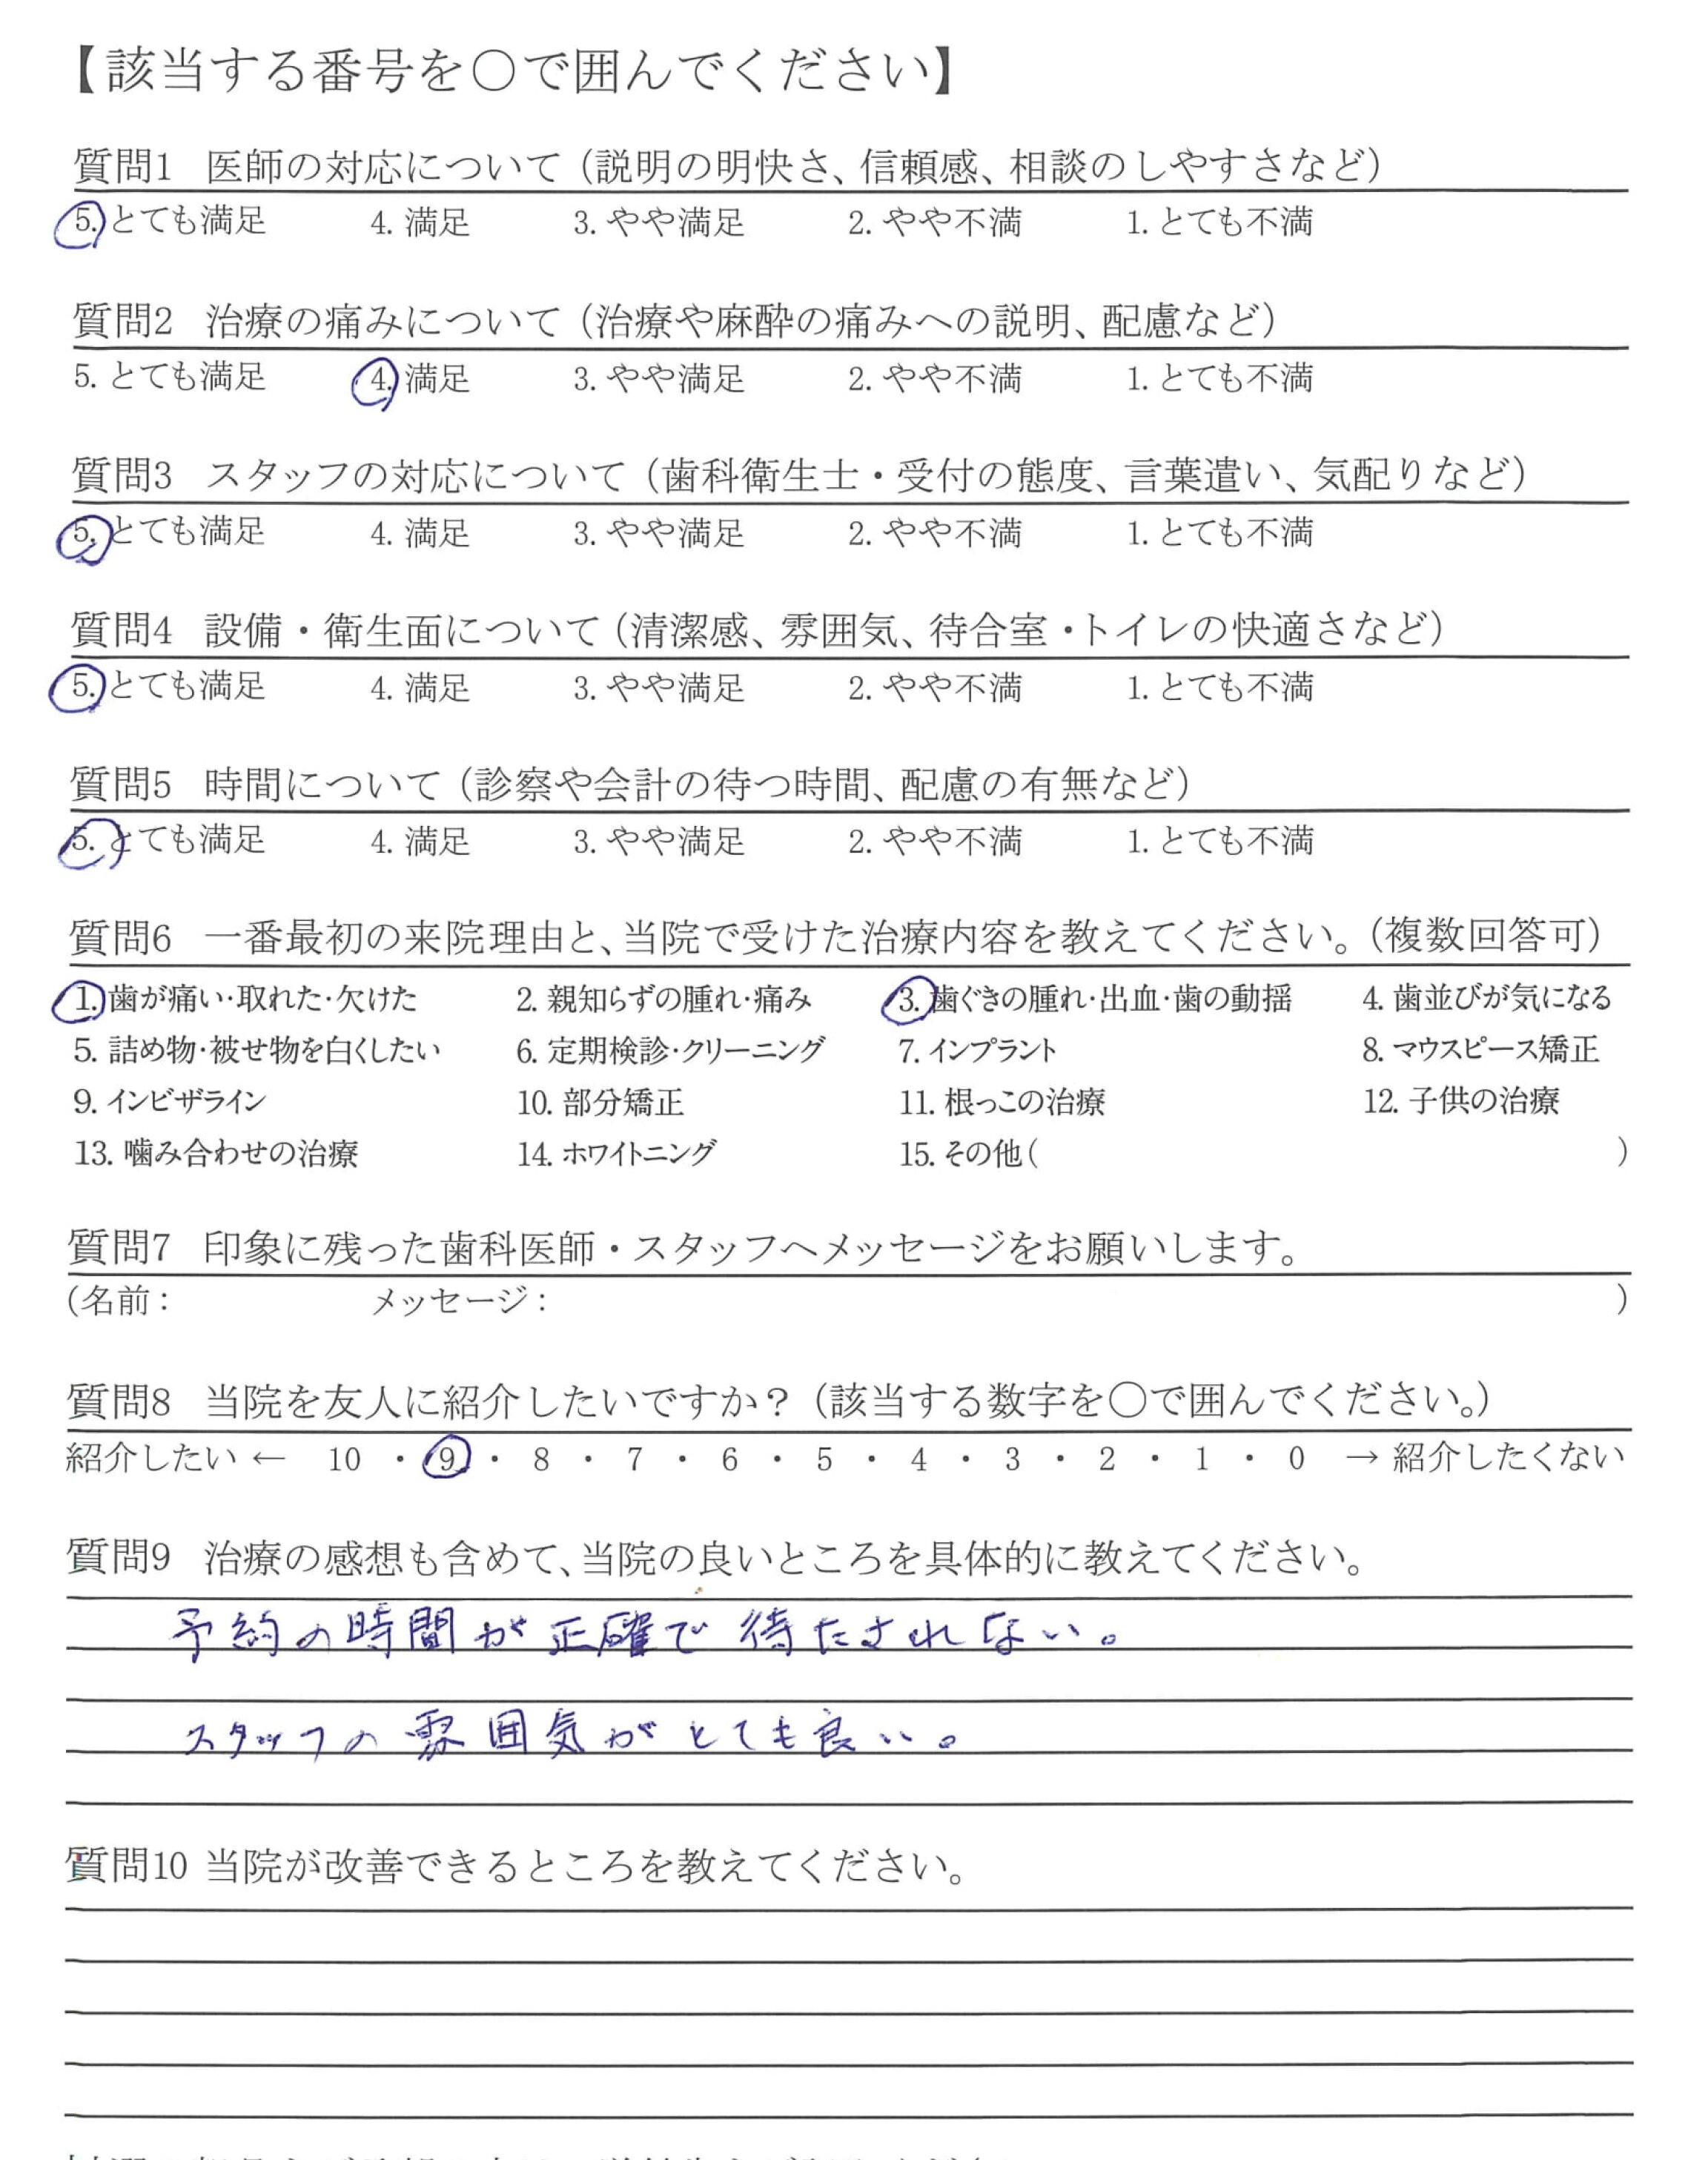 【該当する番号を〇で囲んでください】
質問1 医師の対応について（説明の明快さ、信頼感、相談のしやすさなど）
5. とても満足 4. 満足 3. やや満足 2. やや不満 1. とても不満
質問2 治療の痛みについて（治療や麻酔の痛みへの説明、配慮など）
5. とても満足 4. 満足 3. やや満足 2. やや不満 1. とても不満
質問3 スタッフの対応について（歯科衛生士・受付の態度、言葉遣い、気配りなど）
5. とても満足 4. 満足 3. やや満足 2. やや不満 1. とても不満
質問4 設備・衛生面について（清潔感、雰囲気、待合室・トイレの快適さなど）
5. とても満足 4. 満足 3. やや満足 2. やや不満 1. とても不満
質問5 時間について（診察や会計の待つ時間、配慮の有無など）
5. とても満足 4. 満足 3. やや満足 2. やや不満 1. とても不満
質問6 一番最初の来院理由と、当院で受けた治療内容を教えてください。（複数回答可）
1. 歯が痛い・取れた・欠けた 2. 親知らずの腫れ・痛み 3. 歯ぐきの腫れ・出血・歯の動揺 4. 歯並びが気になる
5. 詰め物・被せ物を白くしたい 6. 定期検診・クリーニング 7. インプラント 8. マウスピース矯正
9. インビザライン 10. 部分矯正 11. 根っこの治療 12. 子供の治療
13. 噛み合わせの治療 14. ホワイトニング 15. その他（ ）
質問7 印象に残った歯科医師・スタッフへメッセージをお願いします。
（名前： メッセージ： ）
質問8 当院を友人に紹介したいですか？（該当する数字を〇で囲んでください。）
紹介したい ← 10 ・ 9 ・ 8 ・ 7 ・ 6 ・ 5 ・ 4 ・ 3 ・ 2 ・ 1 ・ 0 → 紹介したくない
質問9 治療の感想も含めて、当院の良いところを具体的に教えてください。
予約の時間が正確で待たされない。
スタッフの雰囲気がとても良い。
質問10 当院が改善できるところを教えてください。